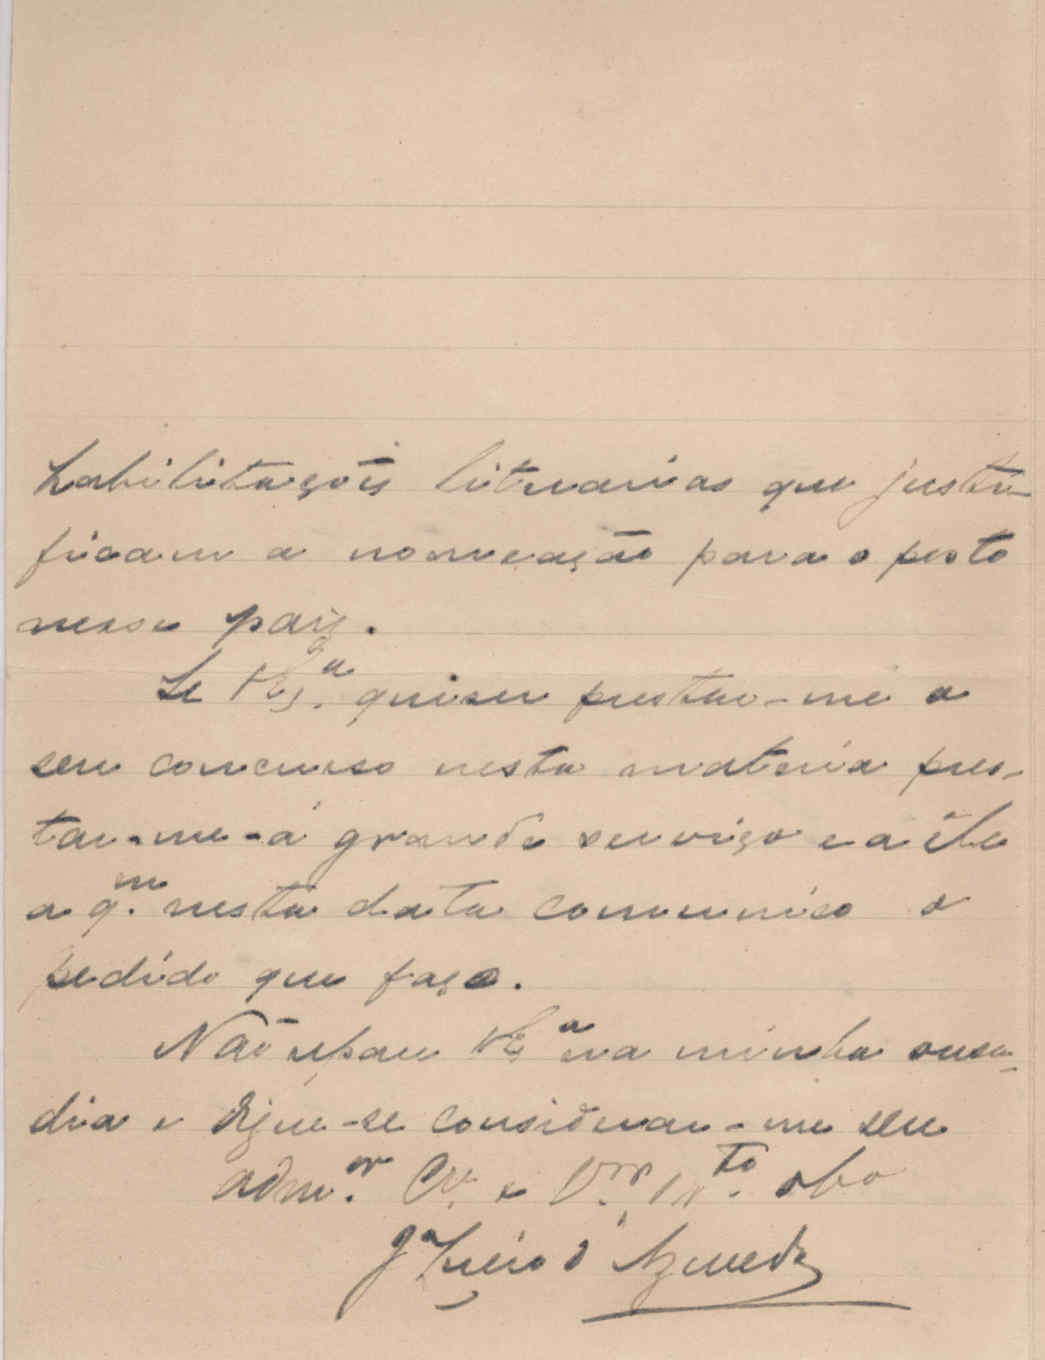 habilitações literarias que justi-
ficam a nomeação para o posto
nesse paiz.
Se V. Ex.ª quiser prestar-me o
seu concurso nesta materia pres-
tar-me-á grande serviço e a êle
a q.m nesta data communico o
pedido que faço.
Não repare V. Ex.ª na minha ousa-
dia e digne-se considerar-me seu
adm.or Cr.º e V.or m.to obo
d'Azevedo